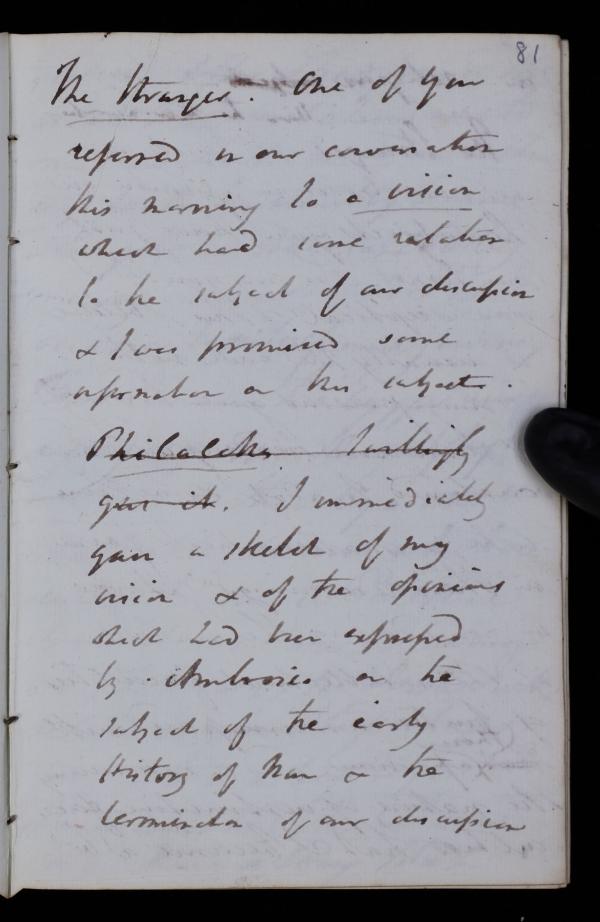 81
The Stranger. One of you
referred in our conversation
this morning to a vision
which had some relation
to the subject of our discussion
& I was promised some
information on this subject.
Philalethes I willingly
gave it. I immediately
gave a sketch of my
vision & of the opinions
which had been expressed
by Ambrosio on the
subject of the early
History of Man & the
termination of our discussion